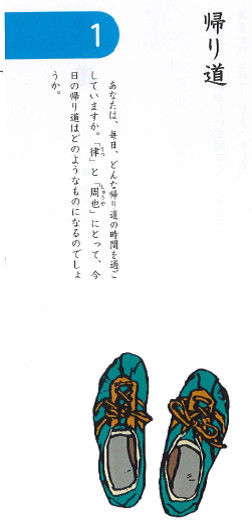 帰り道
1
あなたは、毎日、どんな帰り道の時間を過ご
していますか。「律」と「周也」にとって、今
日の帰り道はどのようなものになるのでしょ
うか。